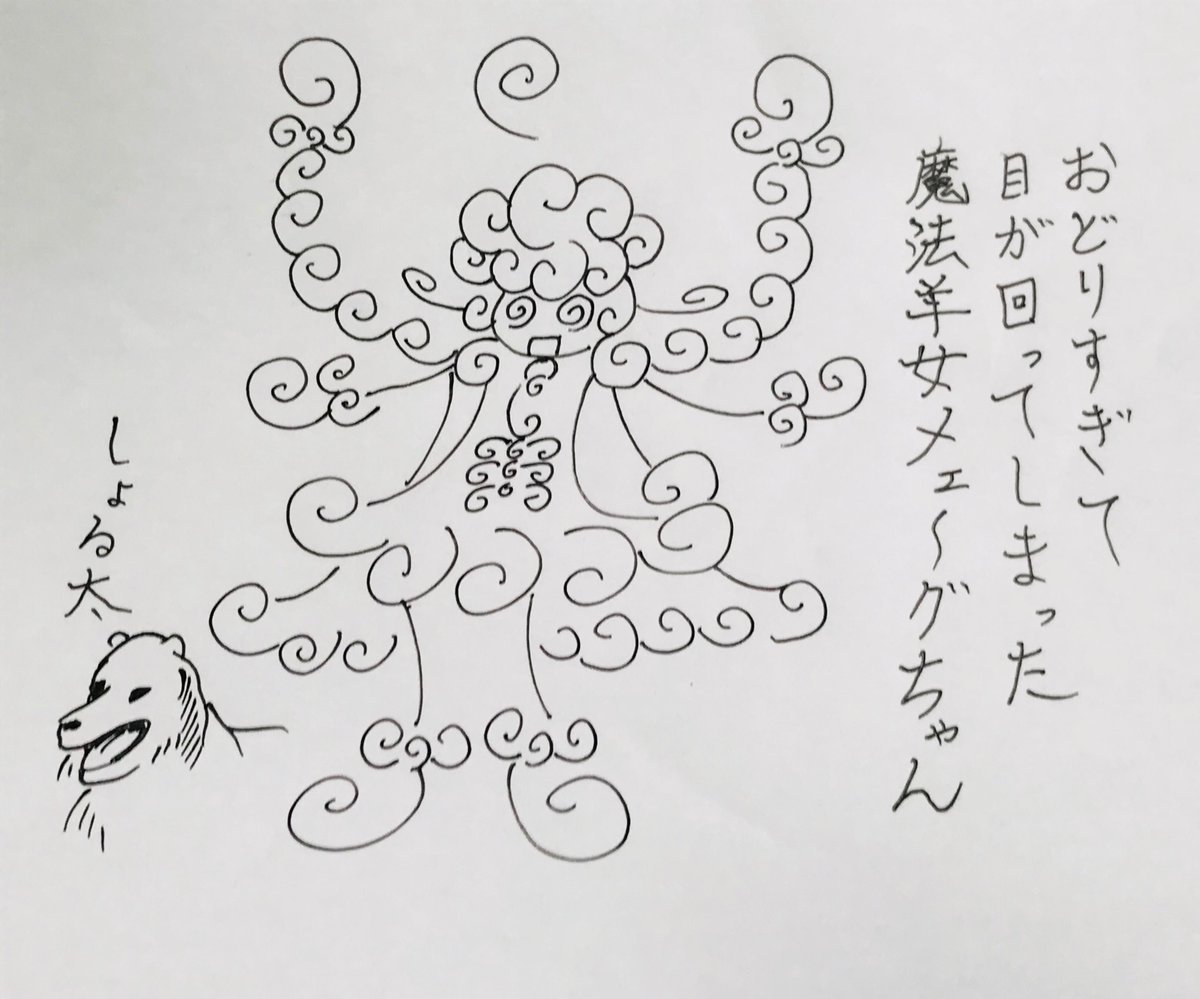 おどりすぎて
目が回ってしまった
魔法羊女メェ〜グちゃん
しょる太